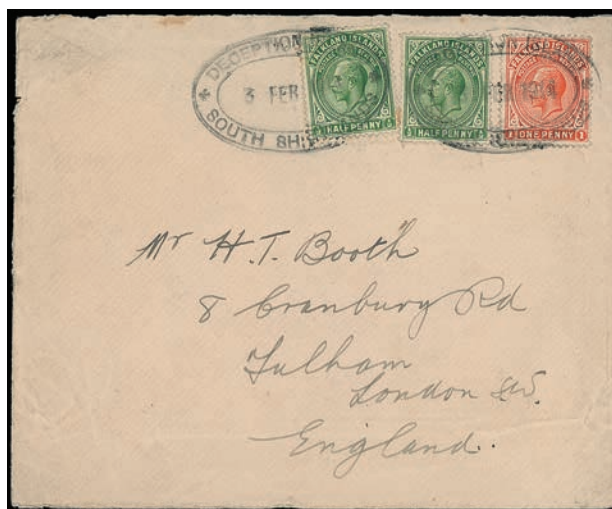 DECEPTION
3 FEB
SOUTH SH
FALKLAND ISLANDS
HALFPENNY
FALKLAND ISLANDS
HALFPENNY
FALKLAND ISLANDS
1 ONE PENNY 1
Mr H.T. Booth
8 Cranbury Rd
Fulham
London SW.
England.